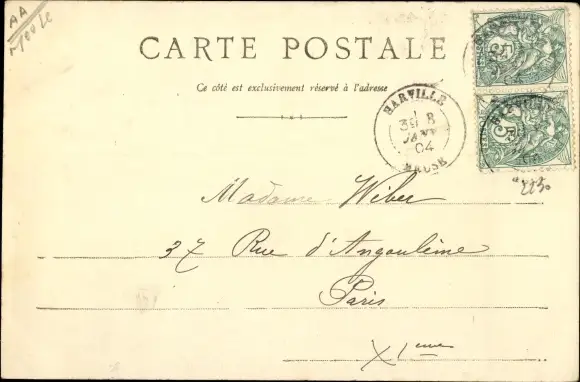 AA
CARTE POSTALE
Ce côté est exclusivement réservé à l'adresse
HARVILLE
30
JANV
04
MEUSE
Madame Wiber
37 Rue d'Angoulème
Paris
XIeme